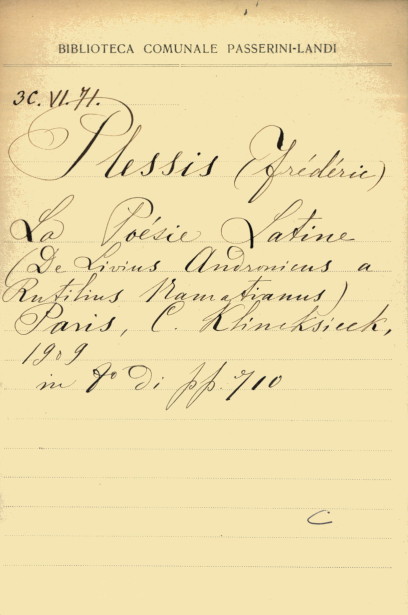 BIBLIOTECA COMUNALE PASSERINI-LANDI
3C. VI. 71.
Plessis (Frédéric)
La Poésie Latine
(De Livius Andronicus a
Rutilius Namatianus)
Paris, C. Klincksieck,
1909
in 8º di pp. 710
C